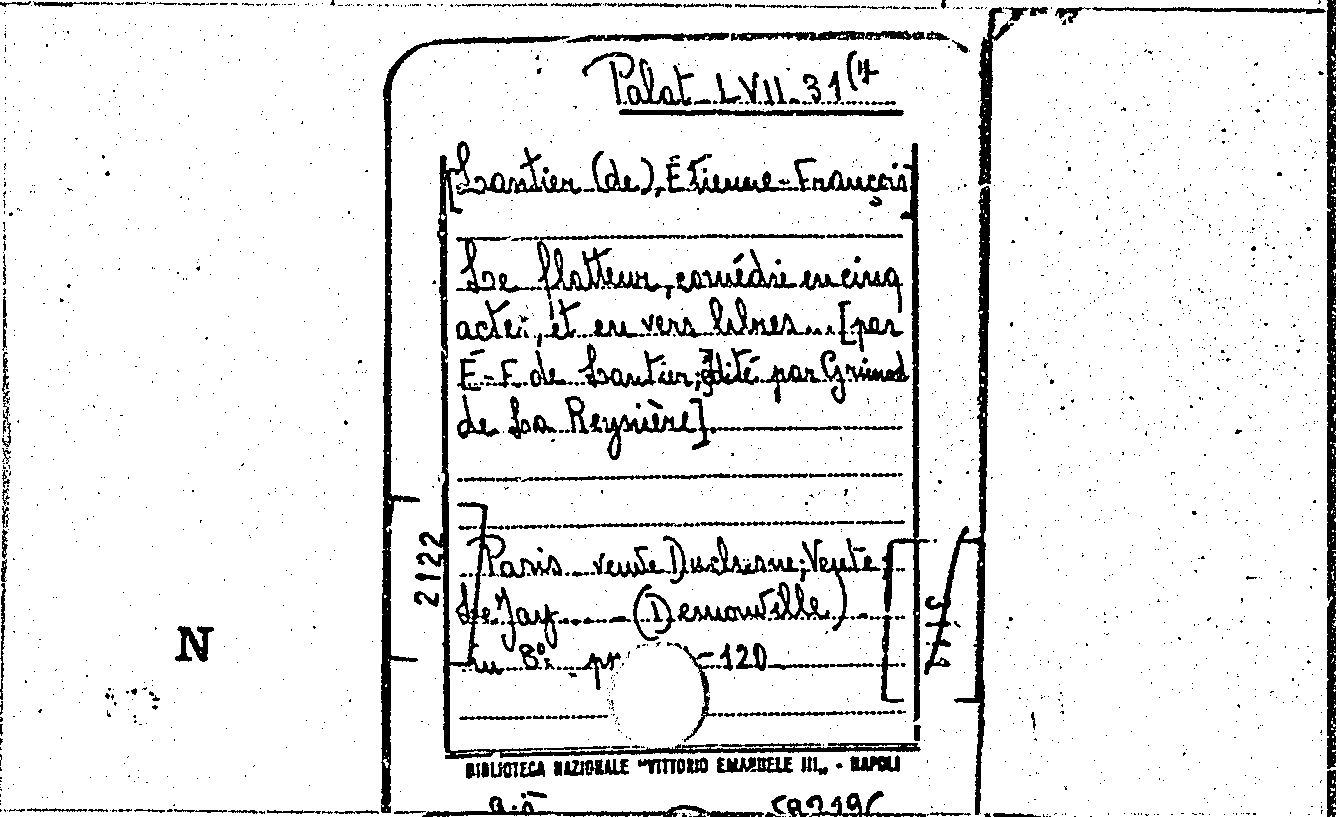 Palat LVII 31(4
[Lantier (de), Étienne-François]
Le flatteur, comédie en cinq
actes, et en vers libres... [par
É-F. de Lantier; édité par Grimod
de La Reynière].
2122
Paris veuve Duchesne; Veuve
Le Jay ... (Demonville)
In 8º. -120
N
BIBLIOTECA NAZIONALE "VITTORIO EMANUELE III" - NAPOLI